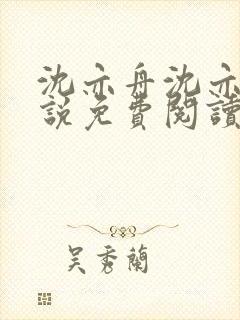 沈亦舟沈亦
說免費閱讀
吳秀蘭